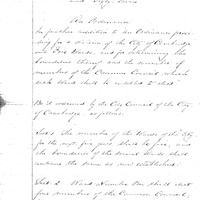 and Fifty-seven
An Ordinance
In further addition to an Ordinance provi-
ding for a division of the City of Cambridge
into Five Wards, and for determining the
boundaries thereof and the number of
members of the Common Council which
each Ward shall be entitled to elect.
Be it ordained by the City Council of the City
of Cambridge as follows
Sect. 1 The number of the Wards of this City
for the next five years shall be five, and
the boundaries of the several Wards shall
continue the same as now established.
Sect. 2 Ward Number One shall elect
four members of the Common Council,